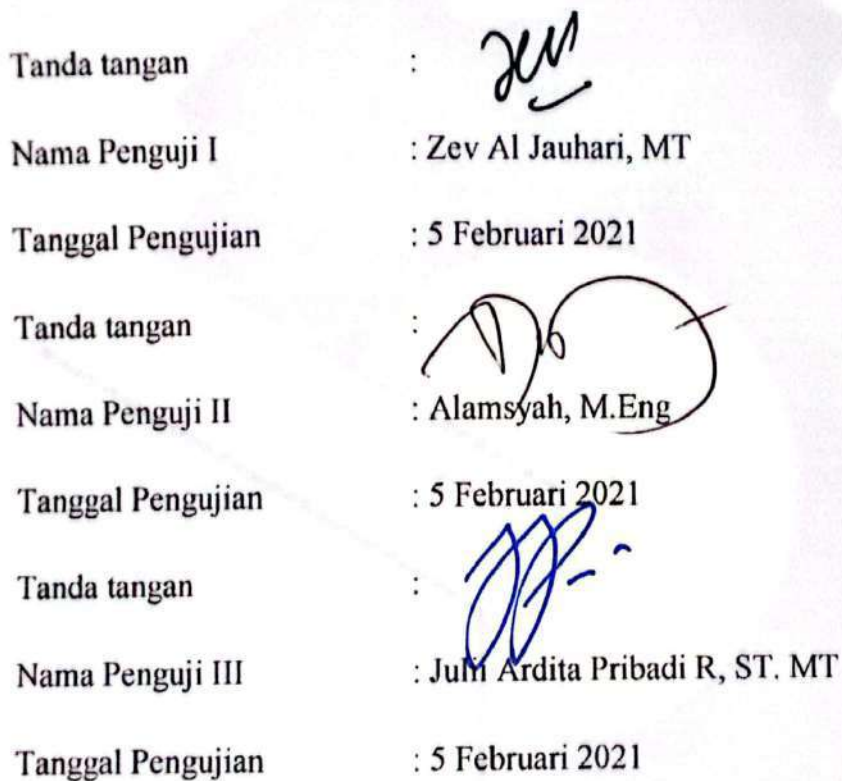 Tanda tangan :
Nama Penguji I : Zev Al Jauhari, MT
Tanggal Pengujian : 5 Februari 2021
Tanda tangan :
Nama Penguji II : Alamsyah, M.Eng
Tanggal Pengujian : 5 Februari 2021
Tanda tangan :
Nama Penguji III : Ardita Pribadi R, ST. MT
Tanggal Pengujian : 5 Februari 2021